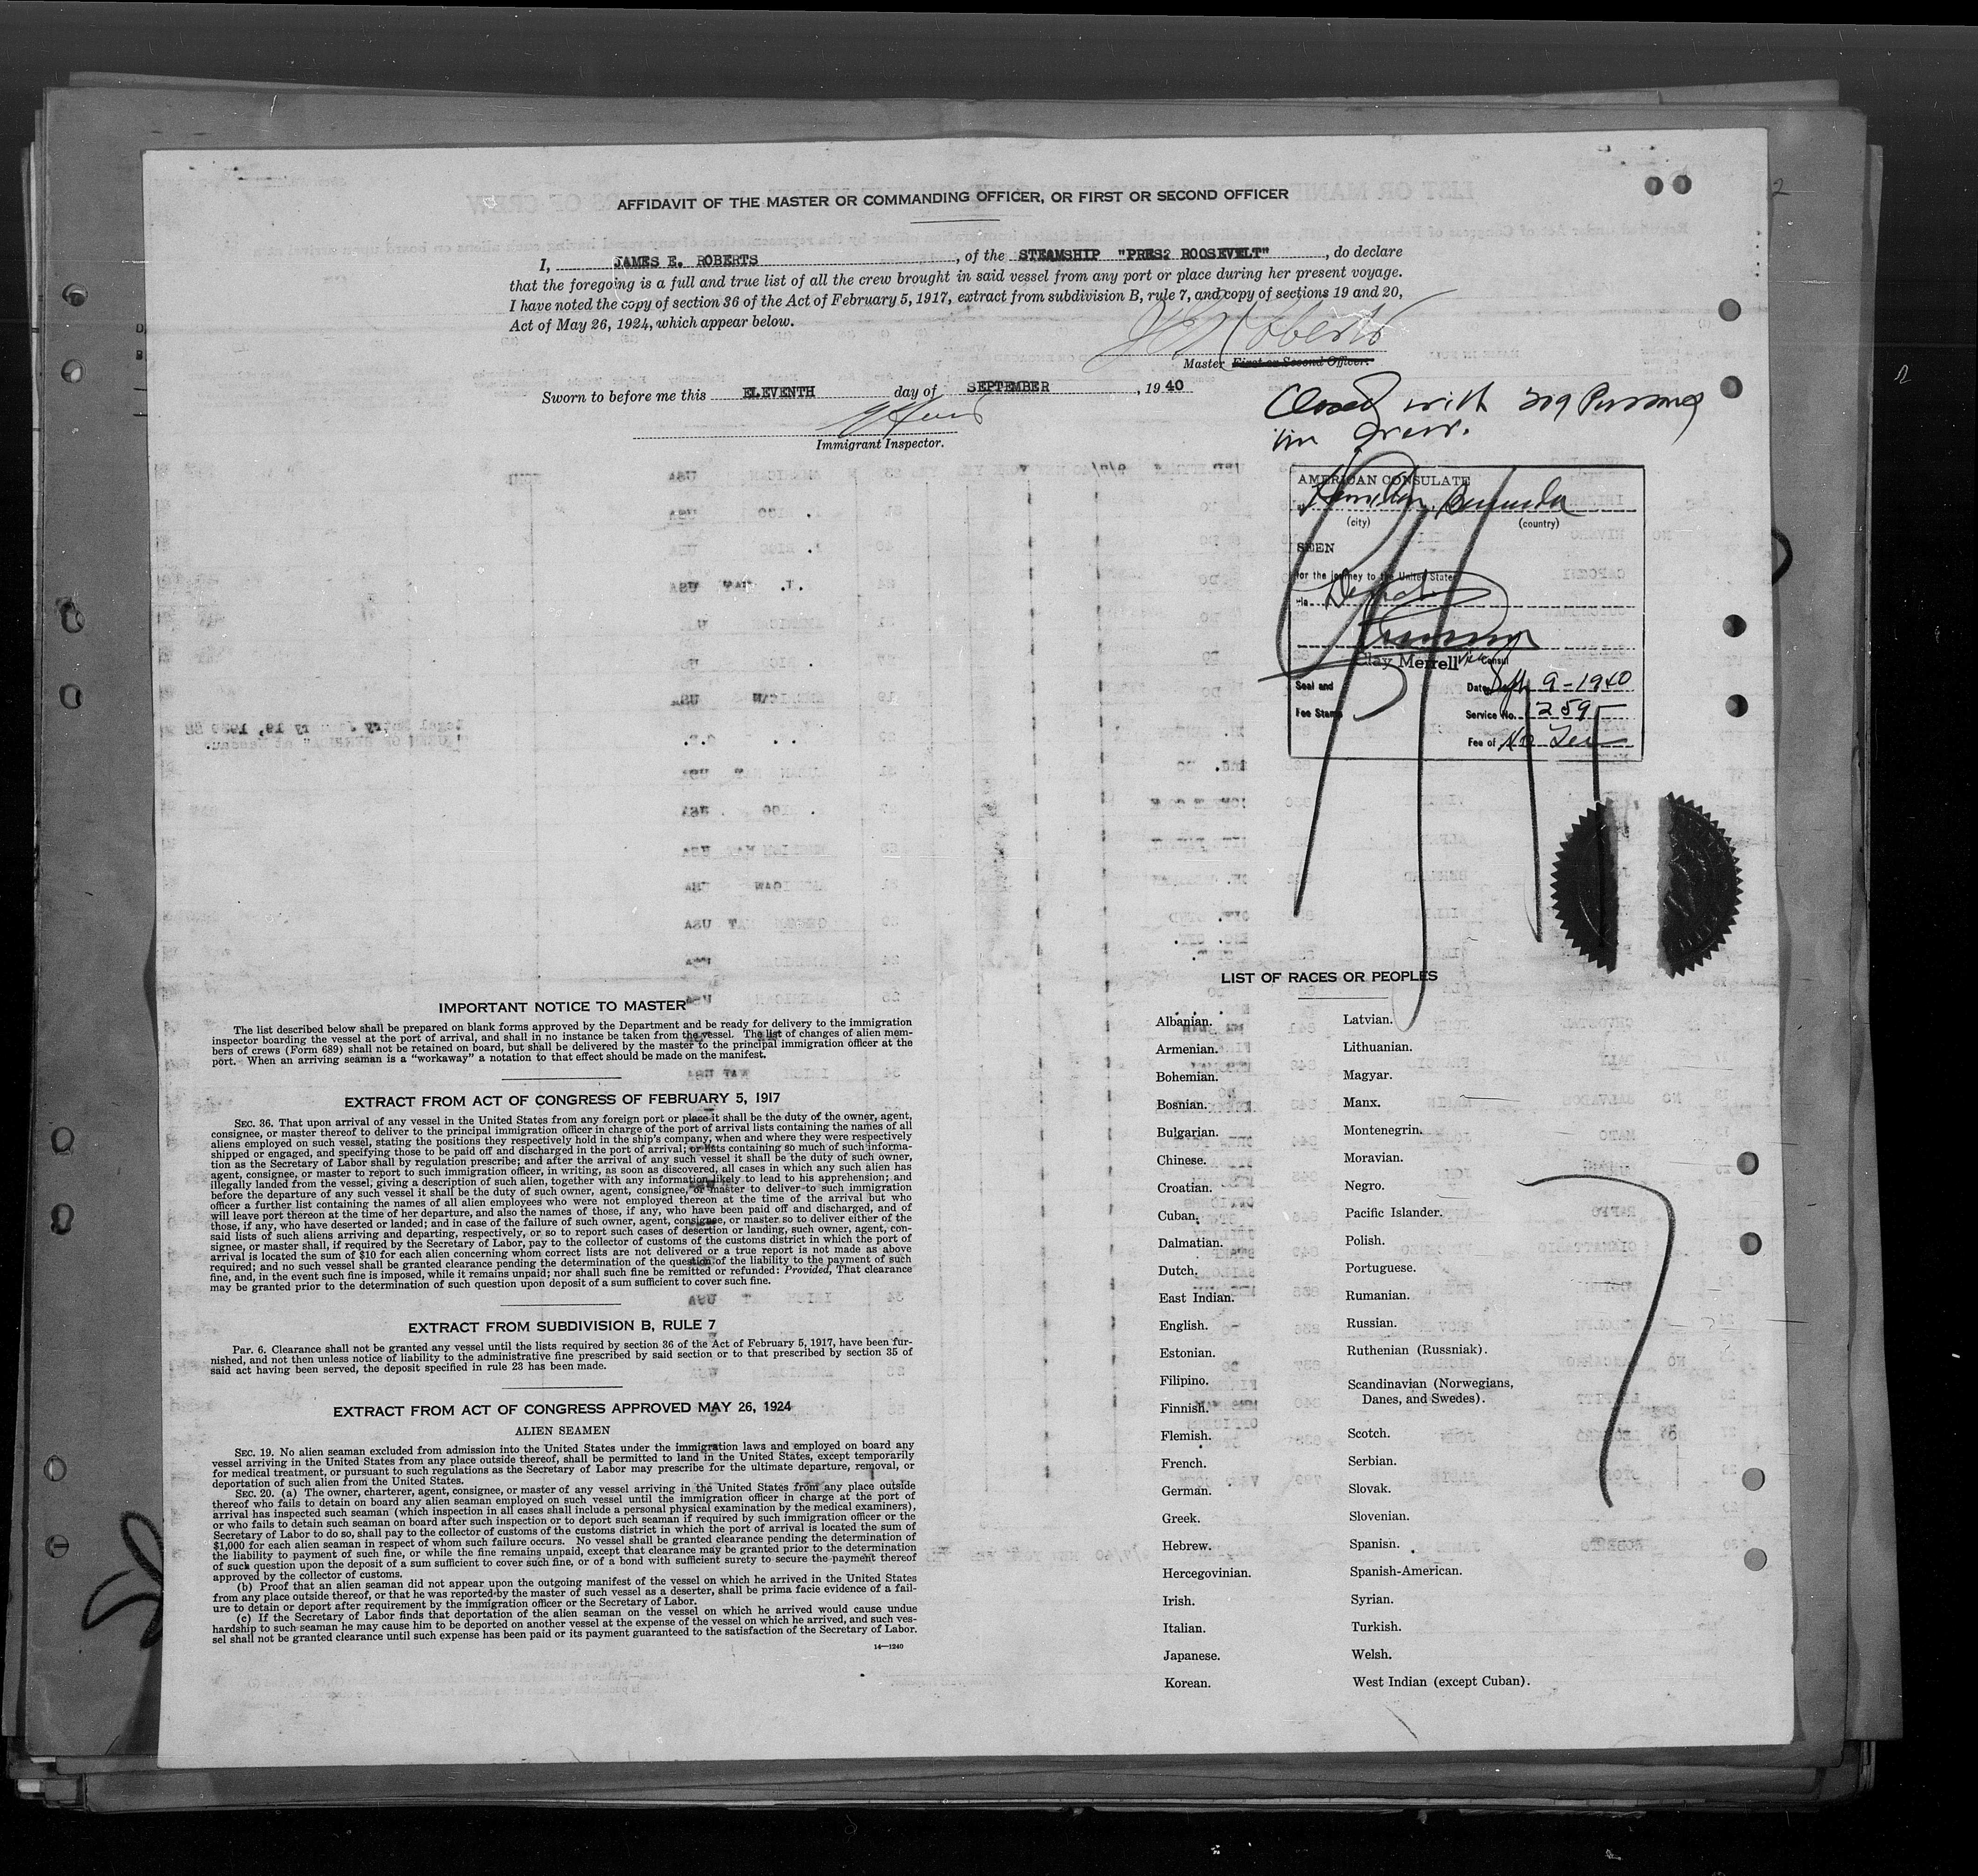 AFFIDAVIT OF THE MASTER OR COMMANDING OFFICER, OR FIRST OR SECOND OFFICER
I, JAMES E. ROBERTS, of the STEAMSHIP "PRES? ROOSEVELT", do declare
that the foregoing is a full and true list of all the crew brought in said vessel from any port or place during her present voyage.
I have noted the copy of section 36 of the Act of February 5, 1917, extract from subdivision B, rule 7, and copy of sections 19 and 20,
Act of May 26, 1924, which appear below.
J E Roberts
Master First or Second Officer.
Sworn to before me this ELEVENTH day of SEPTEMBER, 1940
Immigrant Inspector.
Closed with 309 Persons
in crew.
AMERICAN CONSULATE
at Hamilton, Bermuda
(city) (country)
SEEN
for the journey to the United States
via Direct
Clay Merrell Vice Consul
Seal and Date Sept 9-1940
Fee Stamp Service No. 2595
Fee of No Fee
IMPORTANT NOTICE TO MASTER
The list described below shall be prepared on blank forms approved by the Department and be ready for delivery to the immigration
inspector boarding the vessel at the port of arrival, and shall in no instance be taken from the vessel. The list of changes of alien mem-
bers of crews (Form 689) shall not be retained on board, but shall be delivered by the master to the principal immigration officer at the
port. When an arriving seaman is a "workaway" a notation to that effect should be made on the manifest.
EXTRACT FROM ACT OF CONGRESS OF FEBRUARY 5, 1917
SEC. 36. That upon arrival of any vessel in the United States from any foreign port or place it shall be the duty of the owner, agent,
consignee, or master thereof to deliver to the principal immigration officer in charge of the port of arrival lists containing the names of all
aliens employed on such vessel, stating the positions they respectively hold in the ship's company, when and where they were respectively
shipped or engaged, and specifying those to be paid off and discharged in the port of arrival; or lists containing so much of such informa-
tion as the Secretary of Labor shall by regulation prescribe; and after the arrival of any such vessel it shall be the duty of such owner,
agent, consignee, or master to report to such immigration officer, in writing, as soon as discovered, all cases in which any such alien has
illegally landed from the vessel, giving a description of such alien, together with any information likely to lead to his apprehension; and
before the departure of any such vessel it shall be the duty of such owner, agent, consignee, or master to deliver to such immigration
officer a further list containing the names of all alien employees who were not employed thereon at the time of the arrival but who
will leave port thereon at the time of her departure, and also the names of those, if any, who have been paid off and discharged, and of
those, if any, who have deserted or landed; and in case of the failure of such owner, agent, consignee, or master so to deliver either of the
said lists of such aliens arriving and departing, respectively, or so to report such cases of desertion or landing, such owner, agent, con-
signee, or master shall, if required by the Secretary of Labor, pay to the collector of customs of the customs district in which the port of
arrival is located the sum of $10 for each alien concerning whom correct lists are not delivered or a true report is not made as above
required; and no such vessel shall be granted clearance pending the determination of the question of the liability to the payment of such
fine, and, in the event such fine is imposed, while it remains unpaid; nor shall such fine be remitted or refunded: Provided, That clearance
may be granted prior to the determination of such question upon deposit of a sum sufficient to cover such fine.
EXTRACT FROM SUBDIVISION B, RULE 7
Par. 6. Clearance shall not be granted any vessel until the lists required by section 36 of the Act of February 5, 1917, have been fur-
nished, and not then unless notice of liability to the administrative fine prescribed by said section or to that prescribed by section 35 of
said act having been served, the deposit specified in rule 23 has been made.
EXTRACT FROM ACT OF CONGRESS APPROVED MAY 26, 1924
ALIEN SEAMEN
SEC. 19. No alien seaman excluded from admission into the United States under the immigration laws and employed on board any
vessel arriving in the United States from any place outside thereof, shall be permitted to land in the United States, except temporarily
for medical treatment, or pursuant to such regulations as the Secretary of Labor may prescribe for the ultimate departure, removal, or
deportation of such alien from the United States.
SEC. 20. (a) The owner, charterer, agent, consignee, or master of any vessel arriving in the United States from any place outside
thereof who fails to detain on board any alien seaman employed on such vessel until the immigration officer in charge at the port of
arrival has inspected such seaman (which inspection in all cases shall include a personal physical examination by the medical examiners),
or who fails to detain such seaman on board after such inspection or to deport such seaman if required by such immigration officer or the
Secretary of Labor to do so, shall pay to the collector of customs of the customs district in which the port of arrival is located the sum of
$1,000 for each alien seaman in respect of whom such failure occurs. No vessel shall be granted clearance pending the determination of
the liability to payment of such fine, or while the fine remains unpaid, except that clearance may be granted prior to the determination
of such question upon the deposit of a sum sufficient to cover such fine, or of a bond with sufficient surety to secure the payment thereof
approved by the collector of customs.
(b) Proof that an alien seaman did not appear upon the outgoing manifest of the vessel on which he arrived in the United States
from any place outside thereof, or that he was reported by the master of such vessel as a deserter, shall be prima facie evidence of a fail-
ure to detain or deport after requirement by the immigration officer or the Secretary of Labor.
(c) If the Secretary of Labor finds that deportation of the alien seaman on the vessel on which he arrived would cause undue
hardship to such seaman he may cause him to be deported on another vessel at the expense of the vessel on which he arrived, and such ves-
sel shall not be granted clearance until such expense has been paid or its payment guaranteed to the satisfaction of the Secretary of Labor.
14—1240
LIST OF RACES OR PEOPLES
Albanian.
Armenian.
Bohemian.
Bosnian.
Bulgarian.
Chinese.
Croatian.
Cuban.
Dalmatian.
Dutch.
East Indian.
English.
Estonian.
Filipino.
Finnish.
Flemish.
French.
German.
Greek.
Hebrew.
Hercegovinian.
Irish.
Italian.
Japanese.
Korean.
Latvian.
Lithuanian.
Magyar.
Manx.
Montenegrin.
Moravian.
Negro.
Pacific Islander.
Polish.
Portuguese.
Rumanian.
Russian.
Ruthenian (Russniak).
Scandinavian (Norwegians,
Danes, and Swedes).
Scotch.
Serbian.
Slovak.
Slovenian.
Spanish.
Spanish-American.
Syrian.
Turkish.
Welsh.
West Indian (except Cuban).